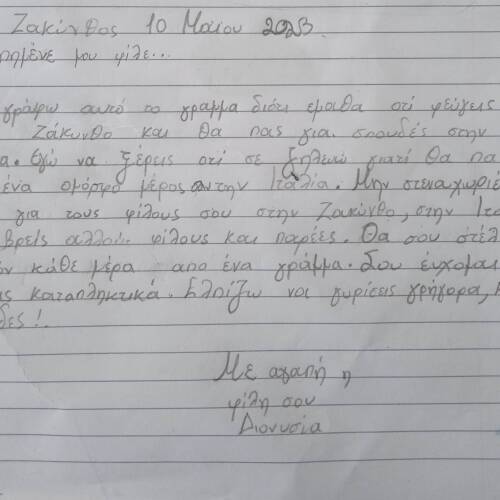 Ζακύνθος 10 Μαΐου 2023
πημένε μου φίλε...
γράφω αυτό το γραμμα διότι εμαθα οτί φεύγεις
Ζάκυνθο και θα πας για σπουδές στην
α. Εγώ να ξέρεις οτί σε ζηλεύω γιατί θα πα
ένα ομορφο μέρος την Ιταλία. Μην στεναχωριέ
για τους φίλους σου στην Ζακύνθο, στην Ιτα
βρείς αλλου φίλους και παρέες. Θα σου στέλ
ν κάθε μέρα απο ένα γράμμα. Σου έυχομαι
ς καταπληκτικά. Ελπίζω να γυρίσεις γρήγορα,
δες!.
Με αγαπή η
φίλη σου
Διονυσία